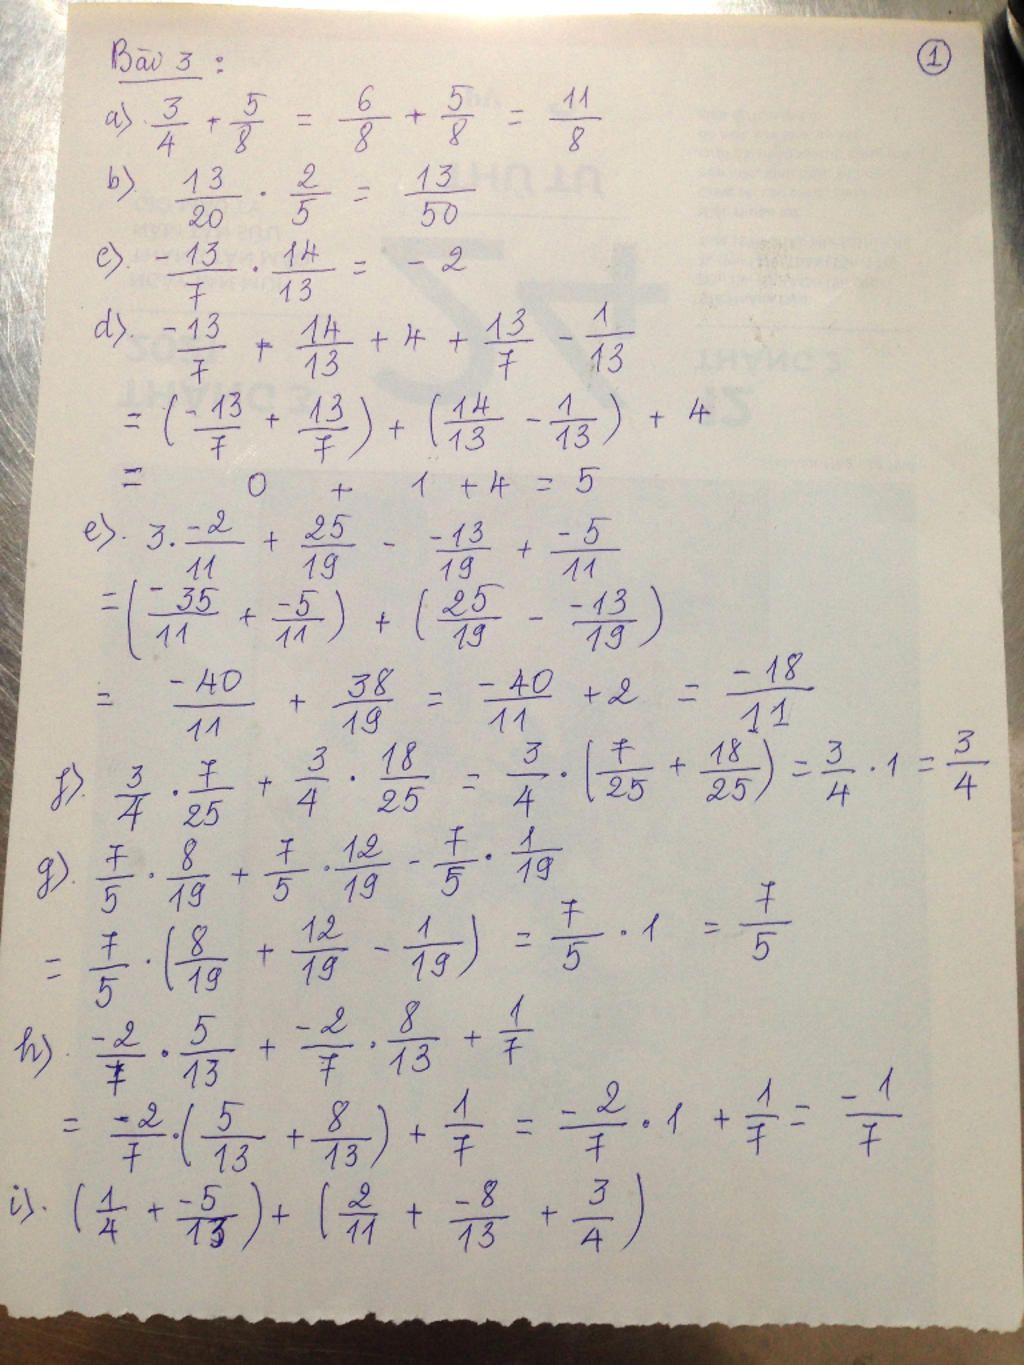 Bài 3 :
1
a) 3/4 + 5/8 = 6/8 + 5/8 = 11/8
b) 13/20 . 2/5 = 13/50
c) -13/7 . 14/13 = -2
d) -13/7 + 14/13 + 4 + 13/7 - 1/13
= (-13/7 + 13/7) + (14/13 - 1/13) + 4
= 0 + 1 + 4 = 5
e) 3. -2/11 + 25/19 - -13/19 + -5/11
= (-35/11 + -5/11) + (25/19 - -13/19)
= -40/11 + 38/19 = -40/11 + 2 = -18/11
f) 3/4 . 7/25 + 3/4 . 18/25 = 3/4 . (7/25 + 18/25) = 3/4 . 1 = 3/4
g) 7/5 . 8/19 + 7/5 . 12/19 - 7/5 . 1/19
= 7/5 . (8/19 + 12/19 - 1/19) = 7/5 . 1 = 7/5
h) -2/7 . 5/13 + -2/7 . 8/13 + 1/7
= -2/7 . (5/13 + 8/13) + 1/7 = -2/7 . 1 + 1/7 = -1/7
i) (1/4 + -5/13) + (2/11 + -8/13 + 3/4)